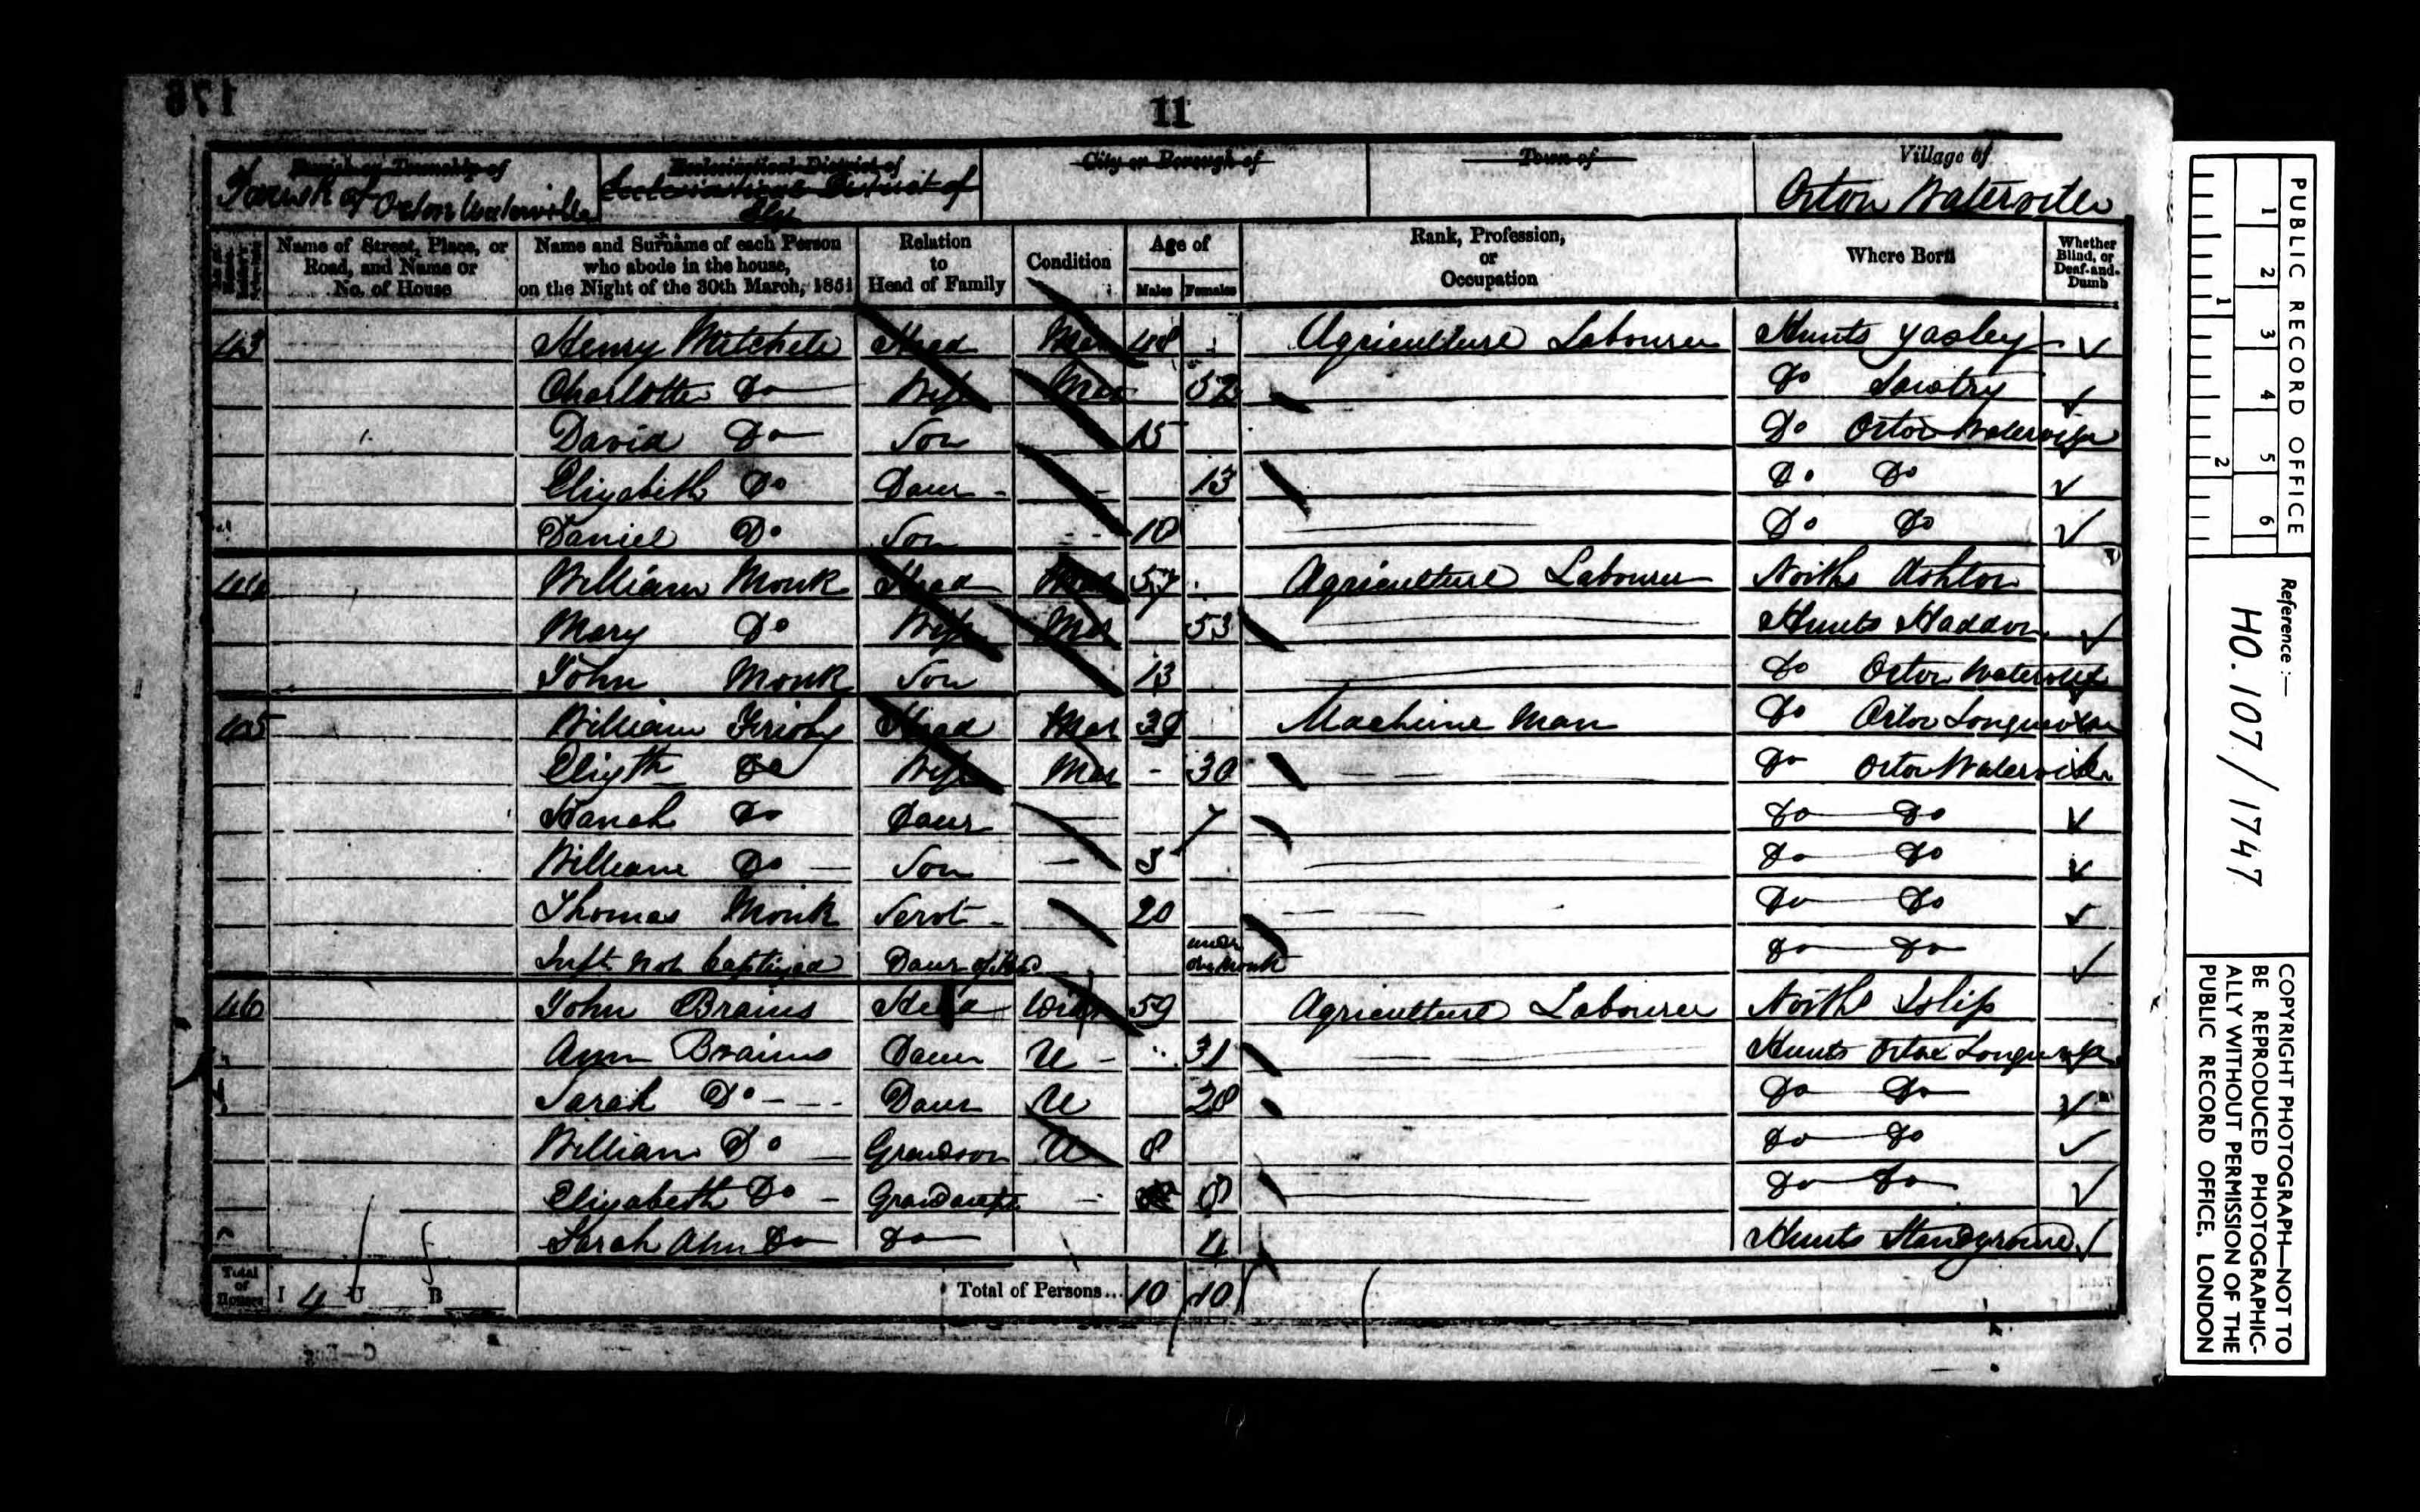 176
11
Parish or Township of
Ecclesiastical District of
City or Borough of
Town of
Village of
Parish of Orton Waterville
Ecclesiastical District of
Orton Waterville
Name of Street, Place, or Road, and Name or No. of House
Name and Surname of each Person who abode in the house, on the Night of the 30th March, 1851
Relation to Head of Family
Condition
Age of
Males Females
Rank, Profession, or Occupation
Where Born
Whether Blind, or Deaf-and-Dumb
43 Henry Mitchele Head Mar 48 Agriculture Labourer Hunts Yaxley
Charlotte Do Wife Mar 52 Do Sawtry
David Do Son 15 Do Orton Waterville
Elizabeth Do Daur 13 Do Do
Daniel Do Son 10 Do Do
44 William Monk Head Mar 57 Agriculture Labourer Norths Ashton
Mary Do Wife Mar 53 Hunts Haddon
John Monk Son 13 Do Orton Waterville
45 William Frisby Head Mar 39 Machine Man Do Orton Longueville
Elizth Do Wife Mar 30 Do Orton Waterville
Hanah Do Daur 7 Do Do
William Do Son Do Do
Thomas Monk Servt 20 Do Do
Inft not baptized Daur of under one Month Do Do
46 John Brains Head Widr 59 Agriculture Labourer Norths Islip
Ann Brains Daur U 31 Hunts Orton Longueville
Sarah Do Daur U 20 Do Do
William Do Grandson U 8 Do Do
Elizabeth Do Do Do
Sarah Ann Do Do 4 Hunts Standground
Total of Houses I 4 U B Total of Persons... 10 10
PUBLIC RECORD OFFICE
1 2 3 4 5 6
1 2
Reference :-
HO. 107 / 1747
COPYRIGHT PHOTOGRAPH—NOT TO
BE REPRODUCED PHOTOGRAPHIC-
ALLY WITHOUT PERMISSION OF THE
PUBLIC RECORD OFFICE. LONDON